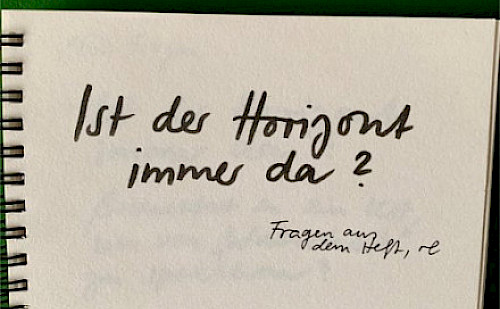 Ist der Horizont
immer da?
Fragen aus
dem Heft,